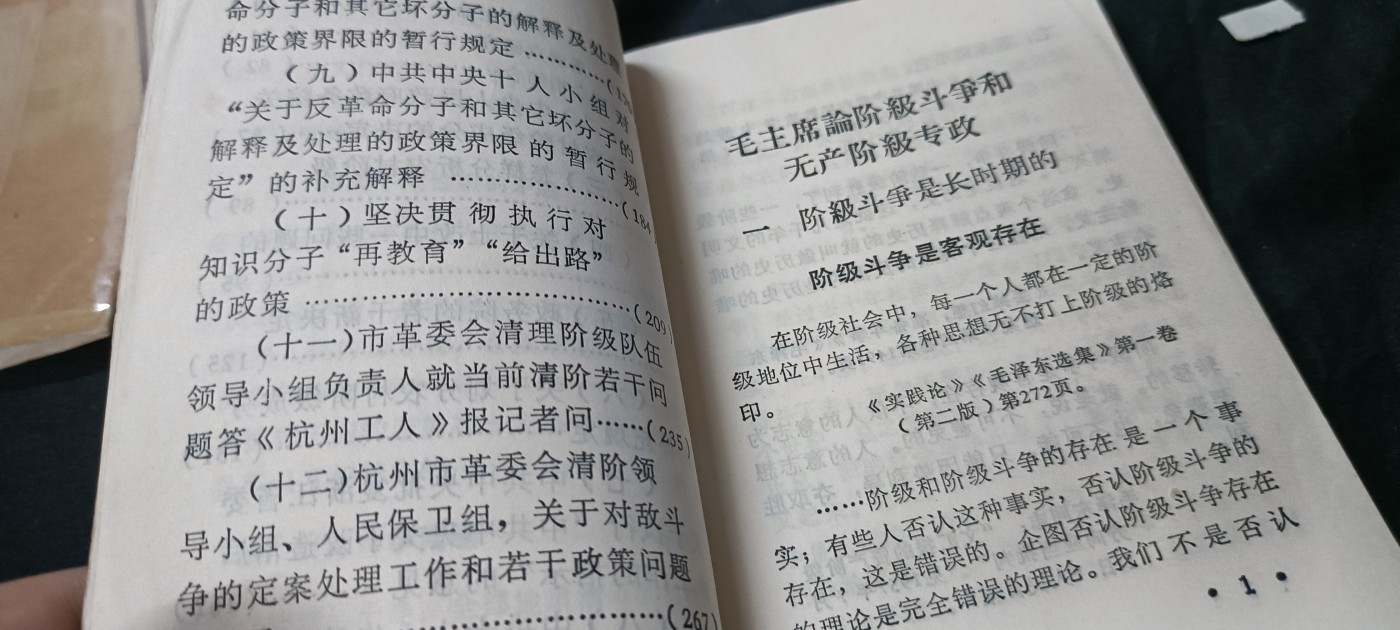 命分子和其它坏分子的解释及处理
的政策界限的暂行规定…………(176
（九）中共中央十人小组对
“关于反革命分子和其它坏分子的
解释及处理的政策界限的暂行规
定”的补充解释 …………………(184)
（十）坚决贯彻执行对
知识分子“再教育”“给出路”
的政策 ……………………………………(209)
（十一）市革委会清理阶级队伍
领导小组负责人就当前清阶若干问
题答《杭州工人》报记者问……(235)
（十二）杭州市革委会清阶领
导小组、人民保卫组，关于对敌斗
争的定案处理工作和若干政策问题
……………………………………(267)
毛主席論阶級斗爭和
无产阶級专政
一 阶級斗爭是长时期的
阶级斗争是客观存在
在阶级社会中，每一个人都在一定的阶
级地位中生活，各种思想无不打上阶级的烙
印。
《实践论》《毛泽东选集》第一卷
（第二版）第272页。
……阶级和阶级斗争的存在是一个事
实；有些人否认这种事实，否认阶级斗争的
存在，这是错误的。企图否认阶级斗争存在
的理论是完全错误的理论。我们不是否认
• 1 •